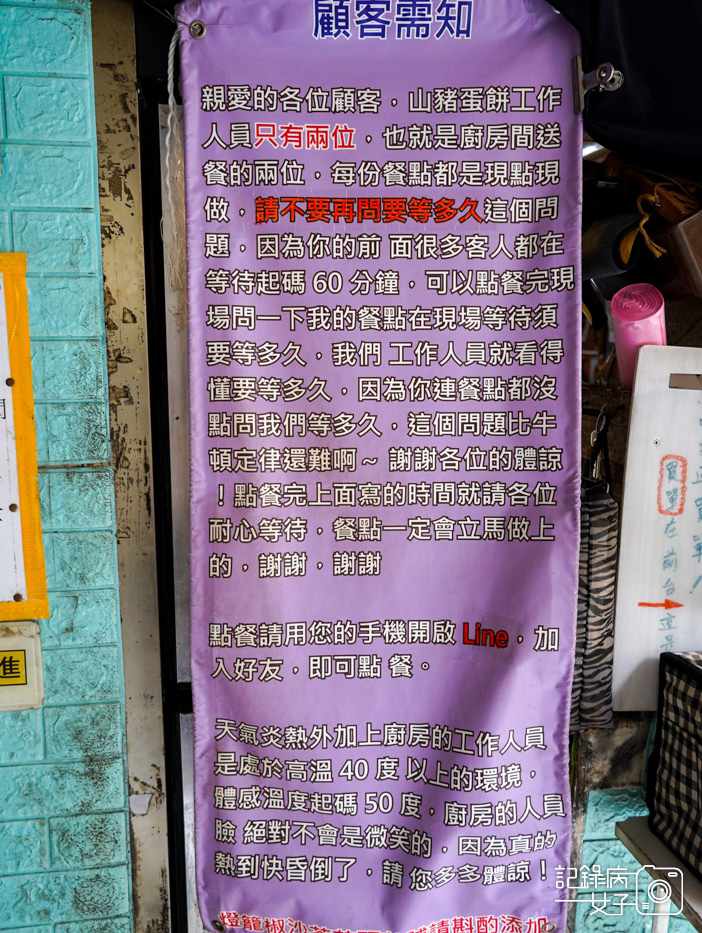 顧客需知
親愛的各位顧客，山豬蛋餅工作
人員只有兩位，也就是廚房間送
餐的兩位，每份餐點都是現點現
做，請不要再問要等多久這個問
題，因為你的前 面很多客人都在
等待起碼 60 分鐘，可以點餐完現
場問一下我的餐點在現場等待須
要等多久，我們 工作人員就看得
懂要等多久，因為你連餐點都沒
點問我們等多久，這個問題比牛
頓定律還難啊～ 謝謝各位的體諒
！點餐完上面寫的時間就請各位
耐心等待，餐點一定會立馬做上
的，謝謝，謝謝
點餐請用您的手機開啟 Line，加
入好友，即可點 餐。
天氣炎熱外加上廚房的工作人員
是處於高溫 40 度 以上的環境，
體感溫度起碼 50 度，廚房的人員
臉 絕對不會是微笑的，因為真的
熱到快昏倒了，請 您多多體諒！
買單
在前台這
進
記錄病
女子